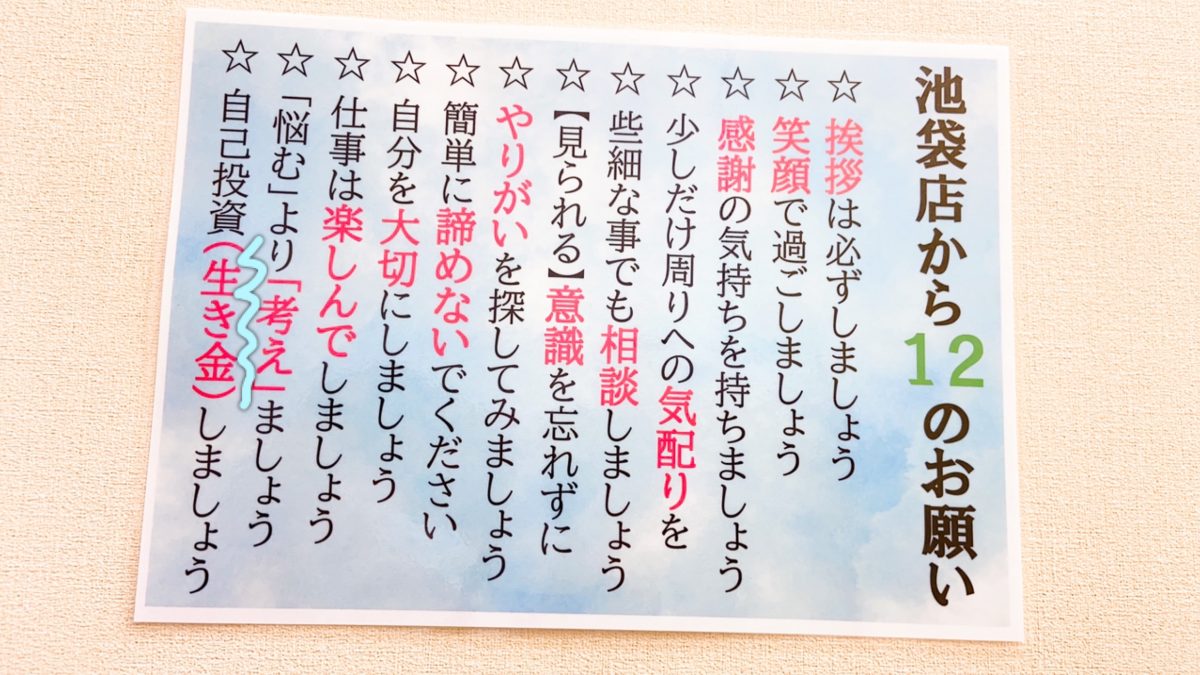 池袋店から12のお願い
☆挨拶は必ずしましょう
☆笑顔で過ごしましょう
☆感謝の気持ちを持ちましょう
☆少しだけ周りへの気配りを
☆些細な事でも相談しましょう
☆【見られる】意識を忘れずに
☆やりがいを探してみましょう
☆簡単に諦めないでください
☆自分を大切にしましょう
☆仕事は楽しんでしましょう
☆「悩む」より「考え」ましょう
☆自己投資(生き金)しましょう